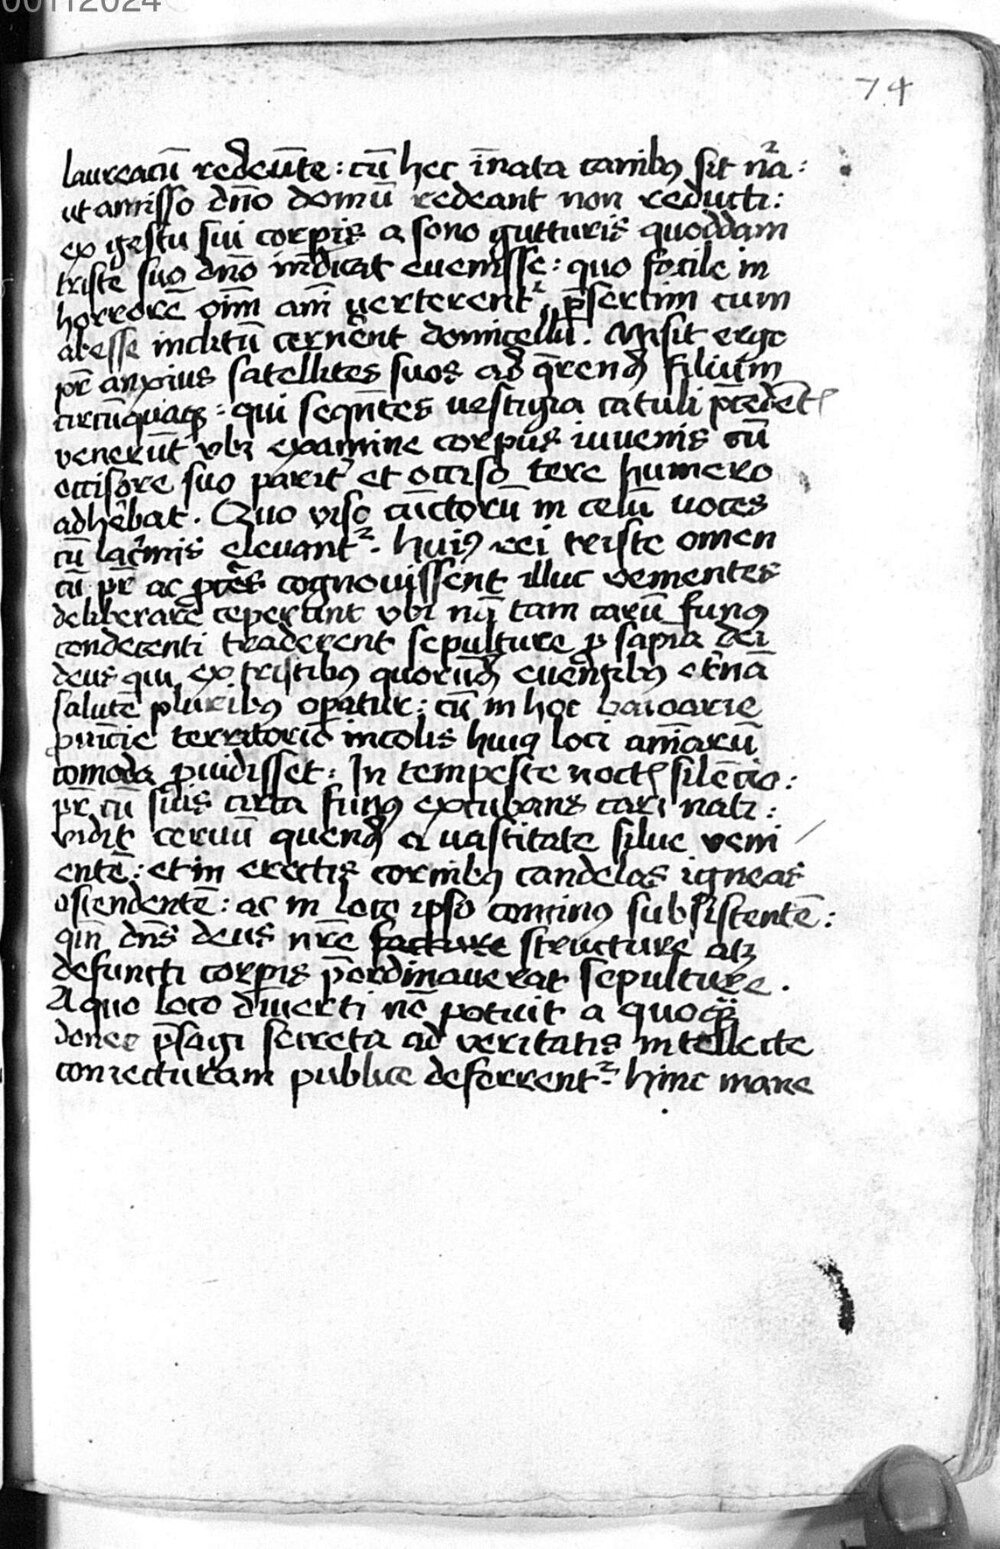 00112024
74
laureacū redeūte : cū hec īnata canibꝰ sit nr̄a :
ut amisso dn̄o domū redeant non reducti :
ex gestu sui corpis a sono gutturis quoddam
triste suo dn̄o indicat euenisse : quo facile in
horrorē oīm aīm verterentʳ p̄sertim cum
abesse inclitū cernēnt domicellū. Misit ergo
pr̄ anxius satellites suos ad q̄rend̄ filium
circūquaqꝫ : qui seqn̄tes vestigia catuli p̄cedēt
venerūt vbi examine corpus iuuenis cū
occisore suo parit̄ et occiso tere humero
adhēbat. Quo viso cūctorū in celū voces
cū lac̄mis eleuantʳ. Huiꝰ rei triste omen
cū pr̄ ac p̄ces cognouissent illuc vementes
deliberare ceperunt vbi nā tam carū funꝰ
condecenti traderent sepulture ꝓ sapīa dei
deus qui ex tristibꝰ quorūd̄ euentibꝰ et̄nā
salutē pluribꝰ opatur : cū in hoc baioarie
ꝓuīcie territorio incolis huiꝰ loci aīarū
comoda ꝓuidisset : In tempeste noct silēcio :
pr̄ cū suis circa funꝰ excubans cari nati :
vidit ceruū quend̄ a vastitate silue veni
entē : et in erectis cornibꝰ candelas igneas
ostendentē : ac in loco ipso cominꝰ subsistentē :
qm̄ dn̄s deus nr̄e facture structure atꝫ
defuncti corpis p̄ordinauerat sepulture.
A quo loco diuerti nō potuit a quoqꝫ
donec p̄sagi secreta ad veritatis intellecte
coniecturam publice deferrentʳ. hinc mane